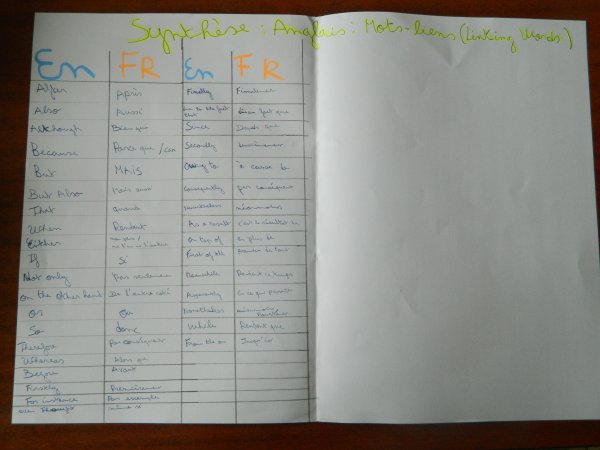 Synthèse : Anglais : Mots-liens (Linking Words)
En FR En FR
After Après Finally Finalement
Also Aussi due to the fact that fait que
Although Bien que Since Depuis que
Because Parce que / car Secondly
But MAIS to à cause de
But Also Mais aussi Consequently par conséquent
That quand néanmoins
When Pendant As a result c'est le résultat de
Either On top of en plus de
If Si First of all
Not only Pas seulement Meanwhile Pendant ce temps
On the other hand De l'autre coté Apparently
Or Ou Nonetheless
So donc While Pendant que
Therefore Par conséquent From then on Jusqu'ici
Whereas Alors que
Before Avant
Firstly Premièrement
For instance Par exemple
even though même si